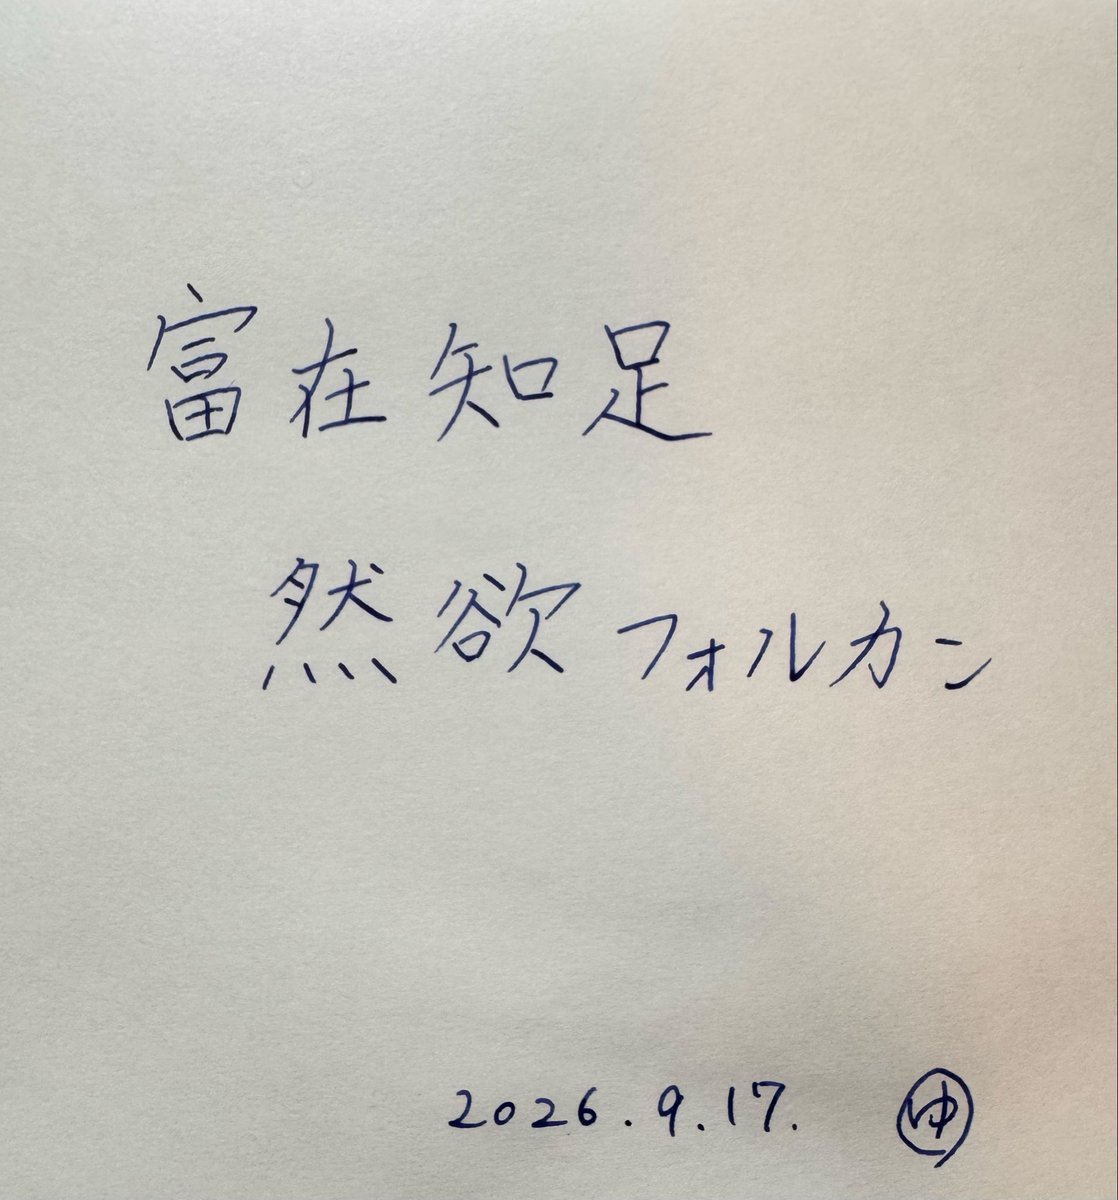 富在知足
然欲フォルカン
2026.9.17. ゆ